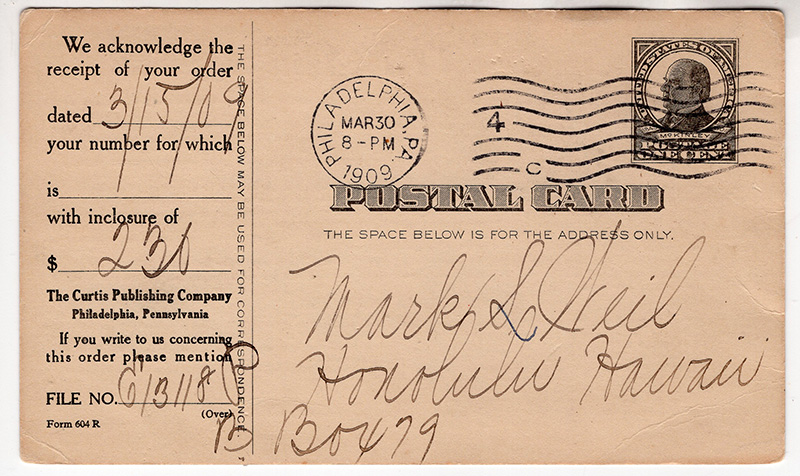 We acknowledge the
receipt of your order
dated 3/15/09
your number for which
is
with inclosure of
$ 230
The Curtis Publishing Company
Philadelphia, Pennsylvania
If you write to us concerning
this order please mention
FILE NO. 613118
(Over)
Form 604 R
B
THE SPACE BELOW MAY BE USED FOR CORRESPONDENCE.
PHILADELPHIA, PA.
MAR 30
8-PM
1909
4
C
UNITED STATES OF AMERICA
McKINLEY
POSTAGE
ONE CENT
POSTAL CARD
THE SPACE BELOW IS FOR THE ADDRESS ONLY.
Mark S. Weil
Honolulu Hawaii
Box 479